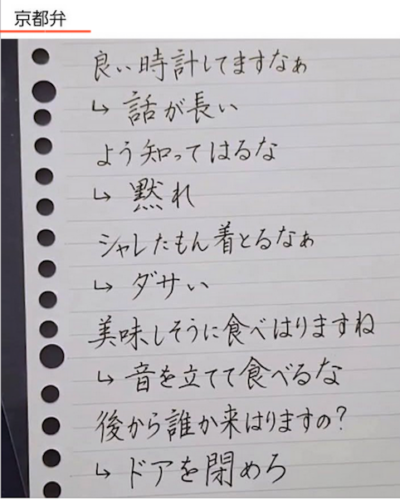 京都弁
良い時計してますなぁ
↳ 話が長い
よう知ってはるな
↳ 黙れ
シャレたもん着とるなぁ
↳ ダサい
美味しそうに食べはりますね
↳ 音を立てて食べるな
後から誰か来はりますの?
↳ ドアを閉めろ